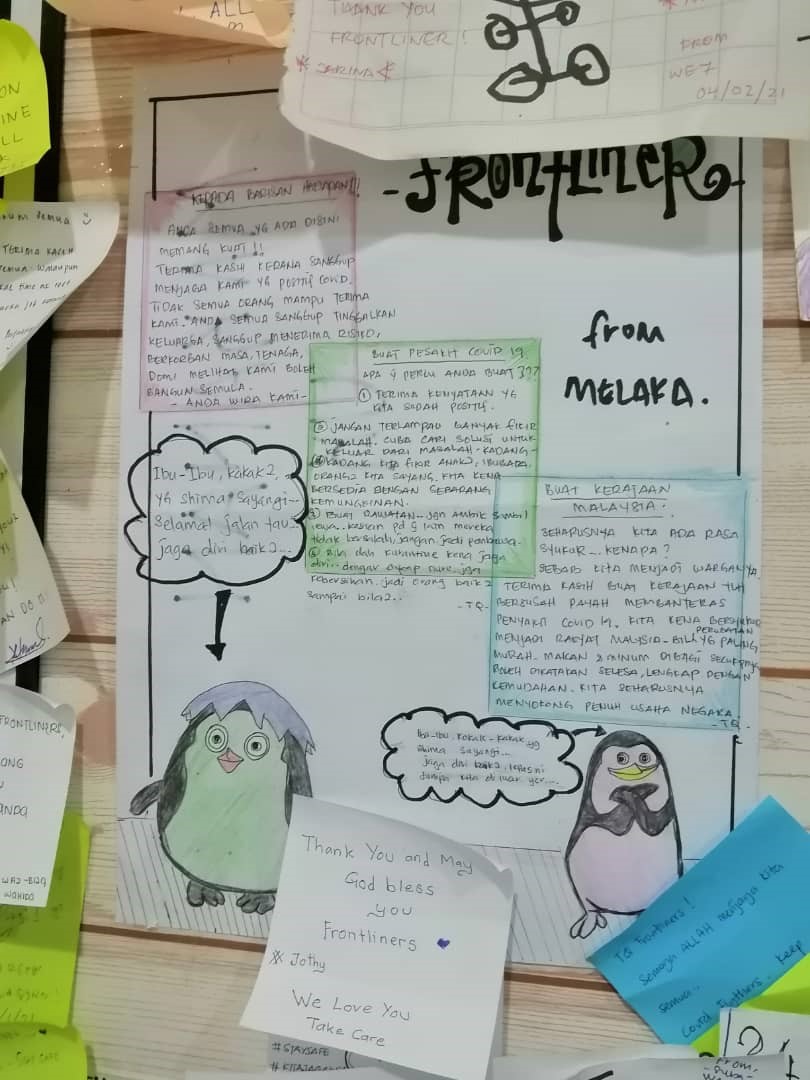 ALL
THANK YOU
FRONTLINER !
* ZARINA
FROM
WE7
04/02/21
ON
INE
LL
-FRONTLINER-
from
MELAKA.
KEPADA BARISAN HADAPAN!!!
ANDA SEMUA YG ADA DISINI
MEMANG KUAT !!
TERIMA KASIH KERANA SANGGUP
MENJAGA KAMI YG POSITIF COVID.
TIDAK SEMUA ORANG MAMPU TERIMA
KAMI. ANDA SEMUA SANGGUP TINGGALKAN
KELUARGA, SANGGUP MENERIMA RISIKO,
BERKORBAN MASA, TENAGA,
DEMI MELIHAT KAMI BOLEH
BANGUN SEMULA.
- ANDA WIRA KAMI -
BUAT PESAKIT COVID 19
APA Y PERLU ANDA BUAT ???
① TERIMA KENYATAAN YG
KITA SUDAH POSITIF.
② JANGAN TERLAMPAU BANYAK FIKIR
MASALAH. CUBA CARI SOLUSI UNTUK
KELUAR DARI MASALAH. KADANG-
KADANG KITA FIKIR ANAK2, IBUBAPA,
ORANG2 KITA SAYANG. KITA KENA
BERSEDIA DENGAN SEBARANG
KEMUNGKINAN.
BUAT RAWATAN. Jgn Ambik
kasian pd lain mereka
tidak bersalah, jangan jadi pembawa.
Bila dah kuarantine kena jaga
diri.. dengar jaga
kebersihan. jadi orang baik2
sampai bila2..
- TQ -
BUAT KERAJAAN
MALAYSIA:
SEHARUSNYA KITA ADA RASA
SYUKUR... KENAPA?
SEBAB KITA MENJADI WARGANYA.
TERIMA KASIH BUAT KERAJAAN
BERSUSAH PAYAH MEMBANTERAS
PENYAKIT COVID 19. KITA KENA BERSYUKUR
PERUBATAN
MENJADI RAKYAT MALYSIA - BILL YG PALING
MURAH. MAKAN 2 MINUM DIBAGI
BOLEH DIKATAKAN SELESA, LENGKAP DENGAN
KEMUDAHAN. KITA SEHARUSNYA
MENYOKONG PENUH USAHA NEGARA
- TQ -
Ibu-Ibu, kakak2,
yg shima sayangi...
Selamat jalan yau
jaga diri baik2...
Ibu-ibu, kakak-kakak yg
shima sayangi...
jaga diri baik2, lepas ni
jumpa kita di luar yer....
TERIMA KASIH
FRONTLINERS,
ONG
ANDA
Thank You and May
God bless
you
Frontliners
Jothy
We Love You
Take Care
#STAYSAFE
TQ Frontliners!
Semoga ALLAH menjaga kita
semua.. keep